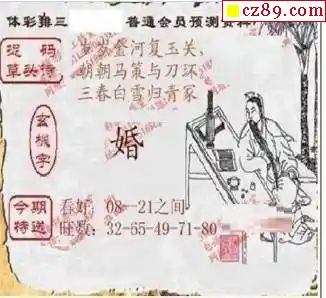 cz89.com
体彩排三 普通会员预测资料
捉码
草头诗
岁岁登河复玉关,
朝朝马策与刀环
三春白雪归青冢
玄機字
婚
今期
特送
看好: 08--21之间
旺数: 32-65-49-71-80